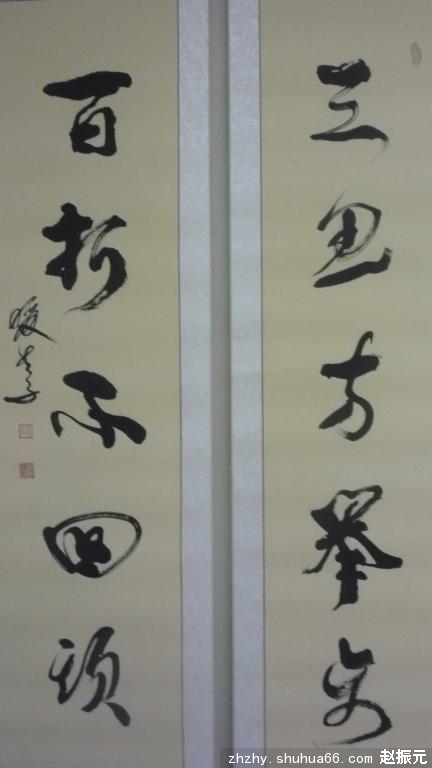 三思方举步
百折不回头
zhzhy.shuhua66.com 赵振元